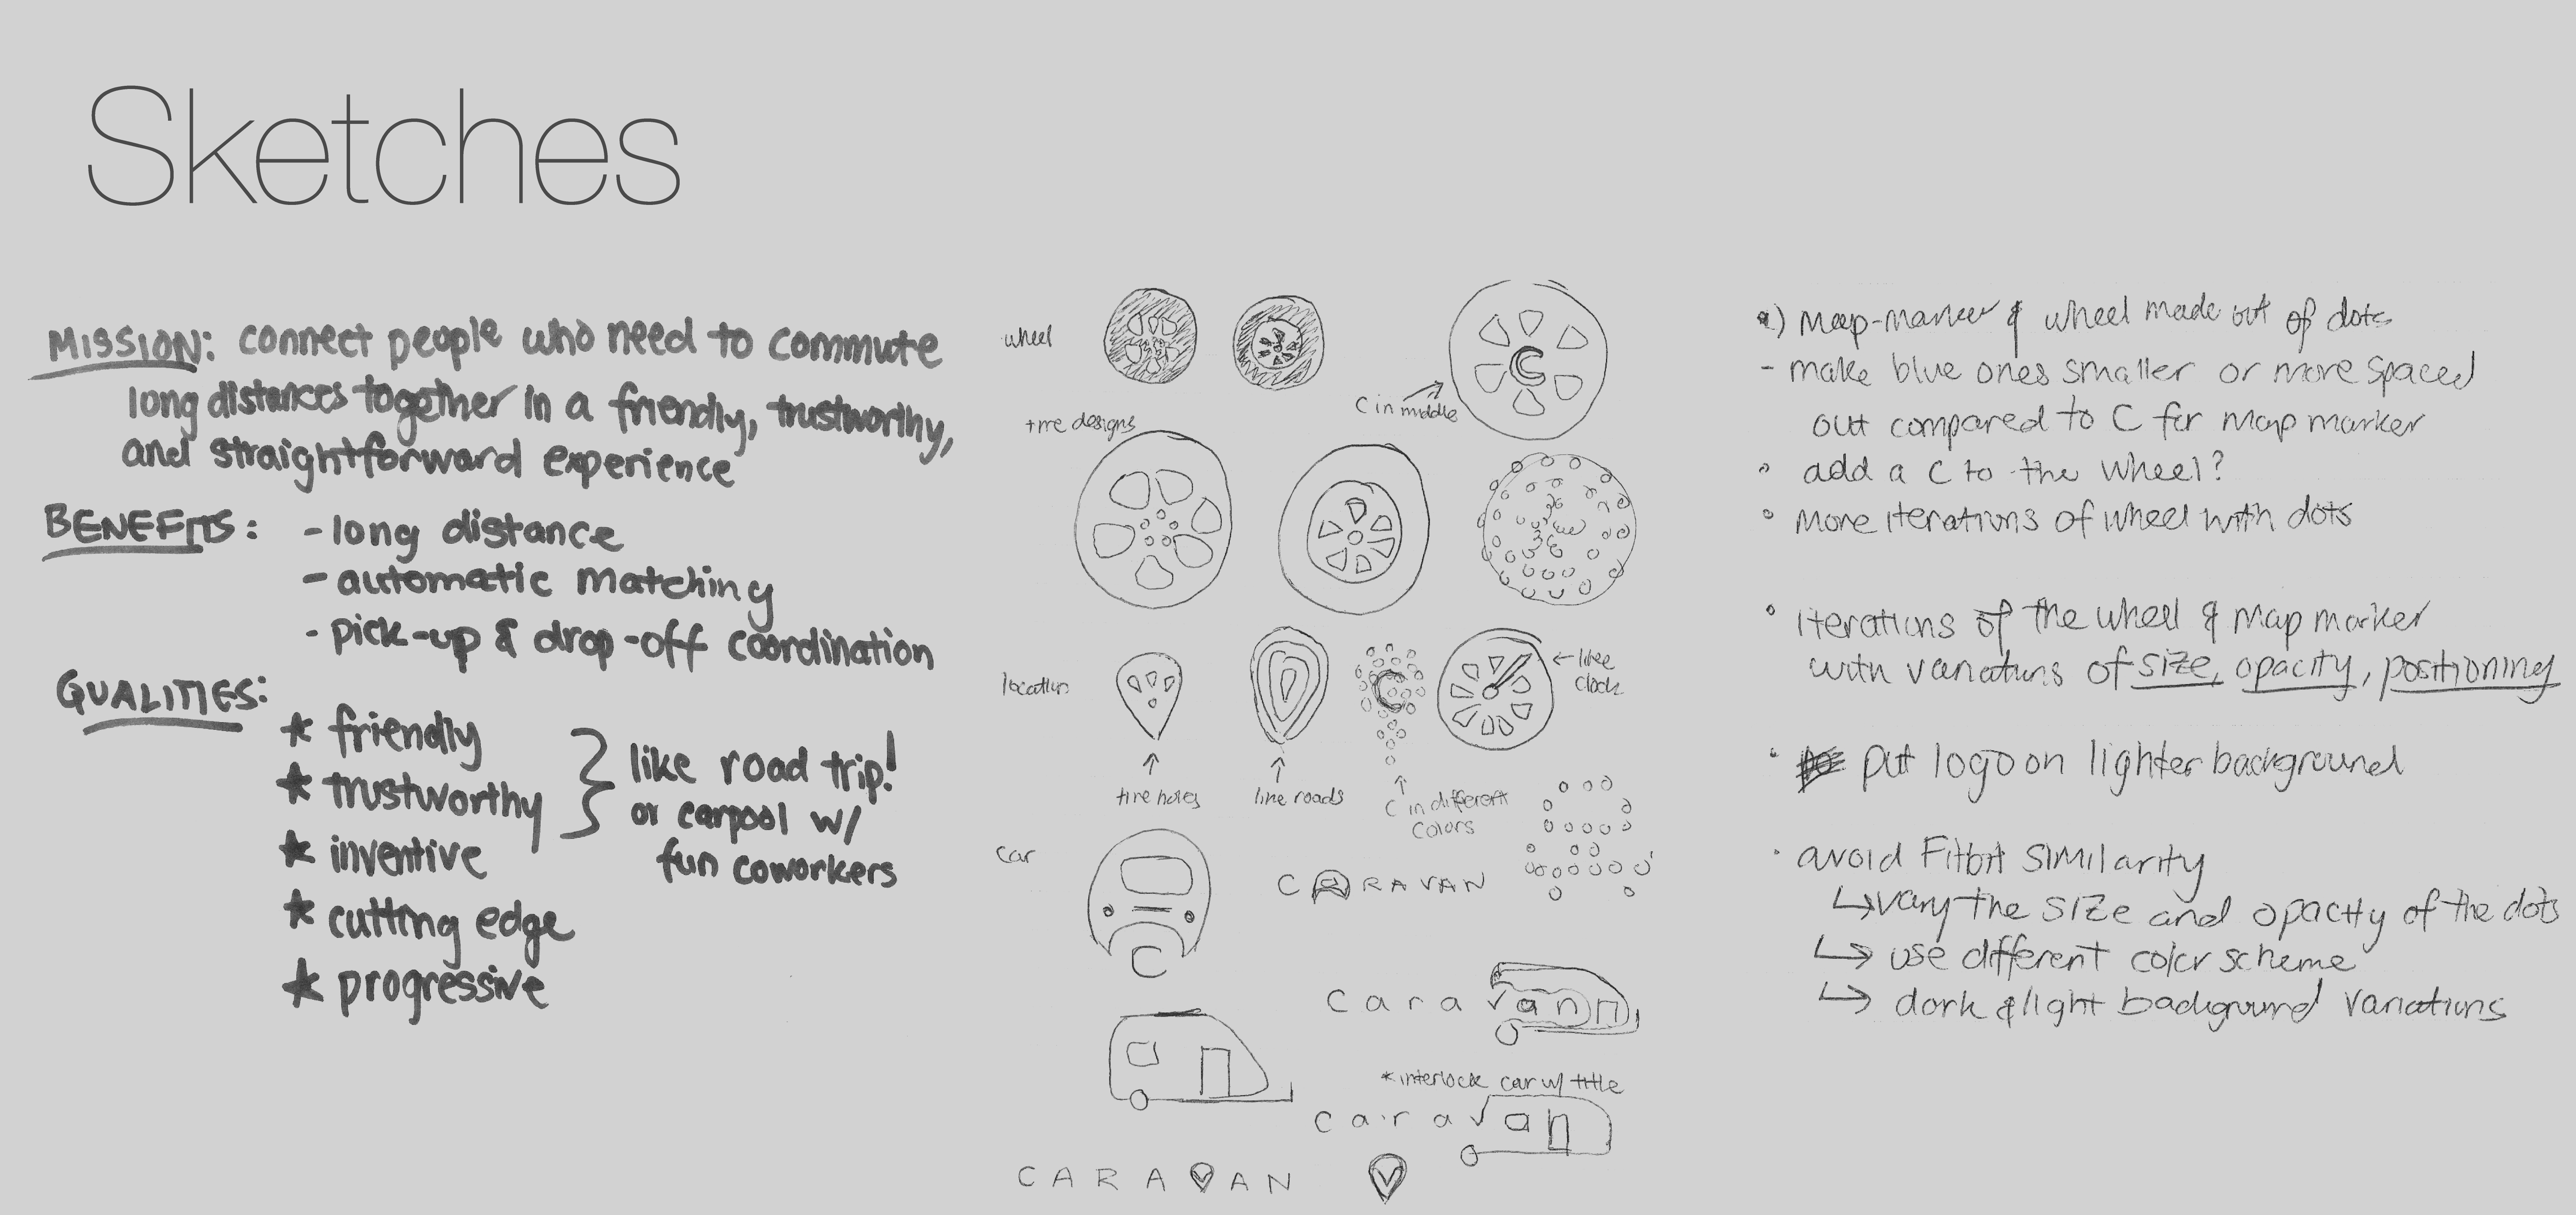 Sketches
MISSION: connect people who need to commute
long distances together in a friendly, trustworthy,
and straightforward experience
BENEFITS: - long distance
- automatic matching
- pick-up & drop-off coordination
QUALITIES:
* friendly
* trustworthy
* inventive
* cutting edge
* progressive
} like road trip!
or carpool w/
fun coworkers
wheel
C
C in middle
tire designs
location
← like
clock
tire holes
line roads
C
C in different
colors
car
C
CARAVAN
caravan
* interlock car w/ title
caravan
CARAVAN
V
a) Map-marker & wheel made out of dots
- make blue ones smaller or more spaced
out compared to C for map marker
° add a C to the wheel?
° more iterations of wheel with dots
° iterations of the wheel & map marker
with variations of size, opacity, positioning
· put logo on lighter background
· avoid Fitbit similarity
↳ vary the size and opacity of the dots
↳ use different color scheme
↳ dark & light background variations